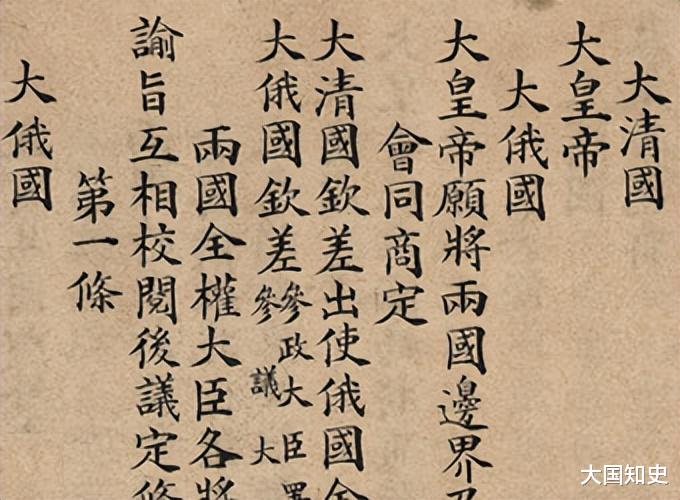 大清國
大皇帝
大俄國
大皇帝願將兩國邊界及
會同商定
大清國欽差出使俄國全
大俄國欽差參政大臣署
參議大
兩國全權大臣各將
諭旨互相校閱後議定條
第一條
大俄國
大国知史